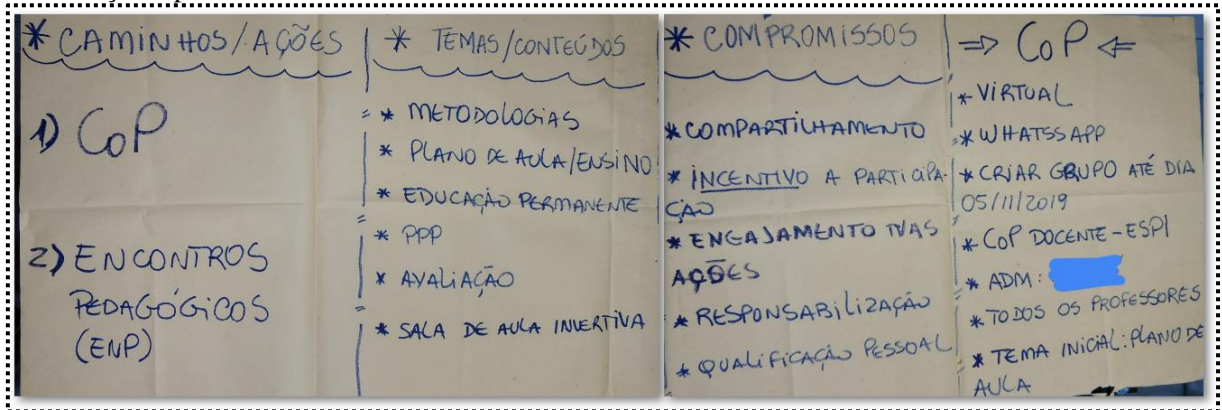 * CAMINHOS/AÇÕES
1) CoP
2) ENCONTROS
PEDAGÓGICOS
(ENP)
* TEMAS/CONTEÚDOS
* METODOLOGIAS
* PLANO DE AULA/ENSINO
* EDUCAÇÃO PERMANENTE
* PPP
* AVALIAÇÃO
* SALA DE AULA INVERTIVA
* COMPROMISSOS
* COMPARTILHAMENTO
* INCENTIVO A PARTICIPA-
ÇÃO
* ENGAJAMENTO NAS
AÇÕES
* RESPONSABILIZAÇÃO
* QUALIFICAÇÃO PESSOAL
⇒ CoP ⇐
* VIRTUAL
* WHATSSAPP
* CRIAR GRUPO ATÉ DIA
05/11/2019
* CoP DOCENTE - ESPI
* ADM:
* TODOS OS PROFESSORES
* TEMA INICIAL: PLANO DE
AULA